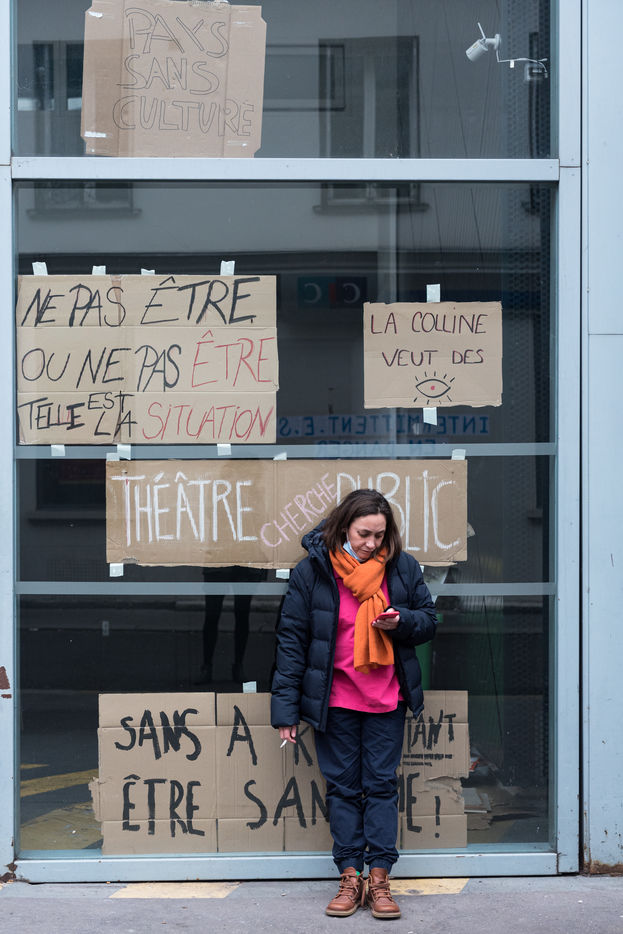 PAYS
SANS
CULTURE
NE PAS ÊTRE
OU NE PAS ÊTRE
TELLE EST LA SITUATION
LA COLLINE
VEUT DES
INTERMITTENT.E.S
EN DANGER
THÉÂTRE CHERCHE PUBLIC
SANS A TANT
ÊTRE SAN ME!